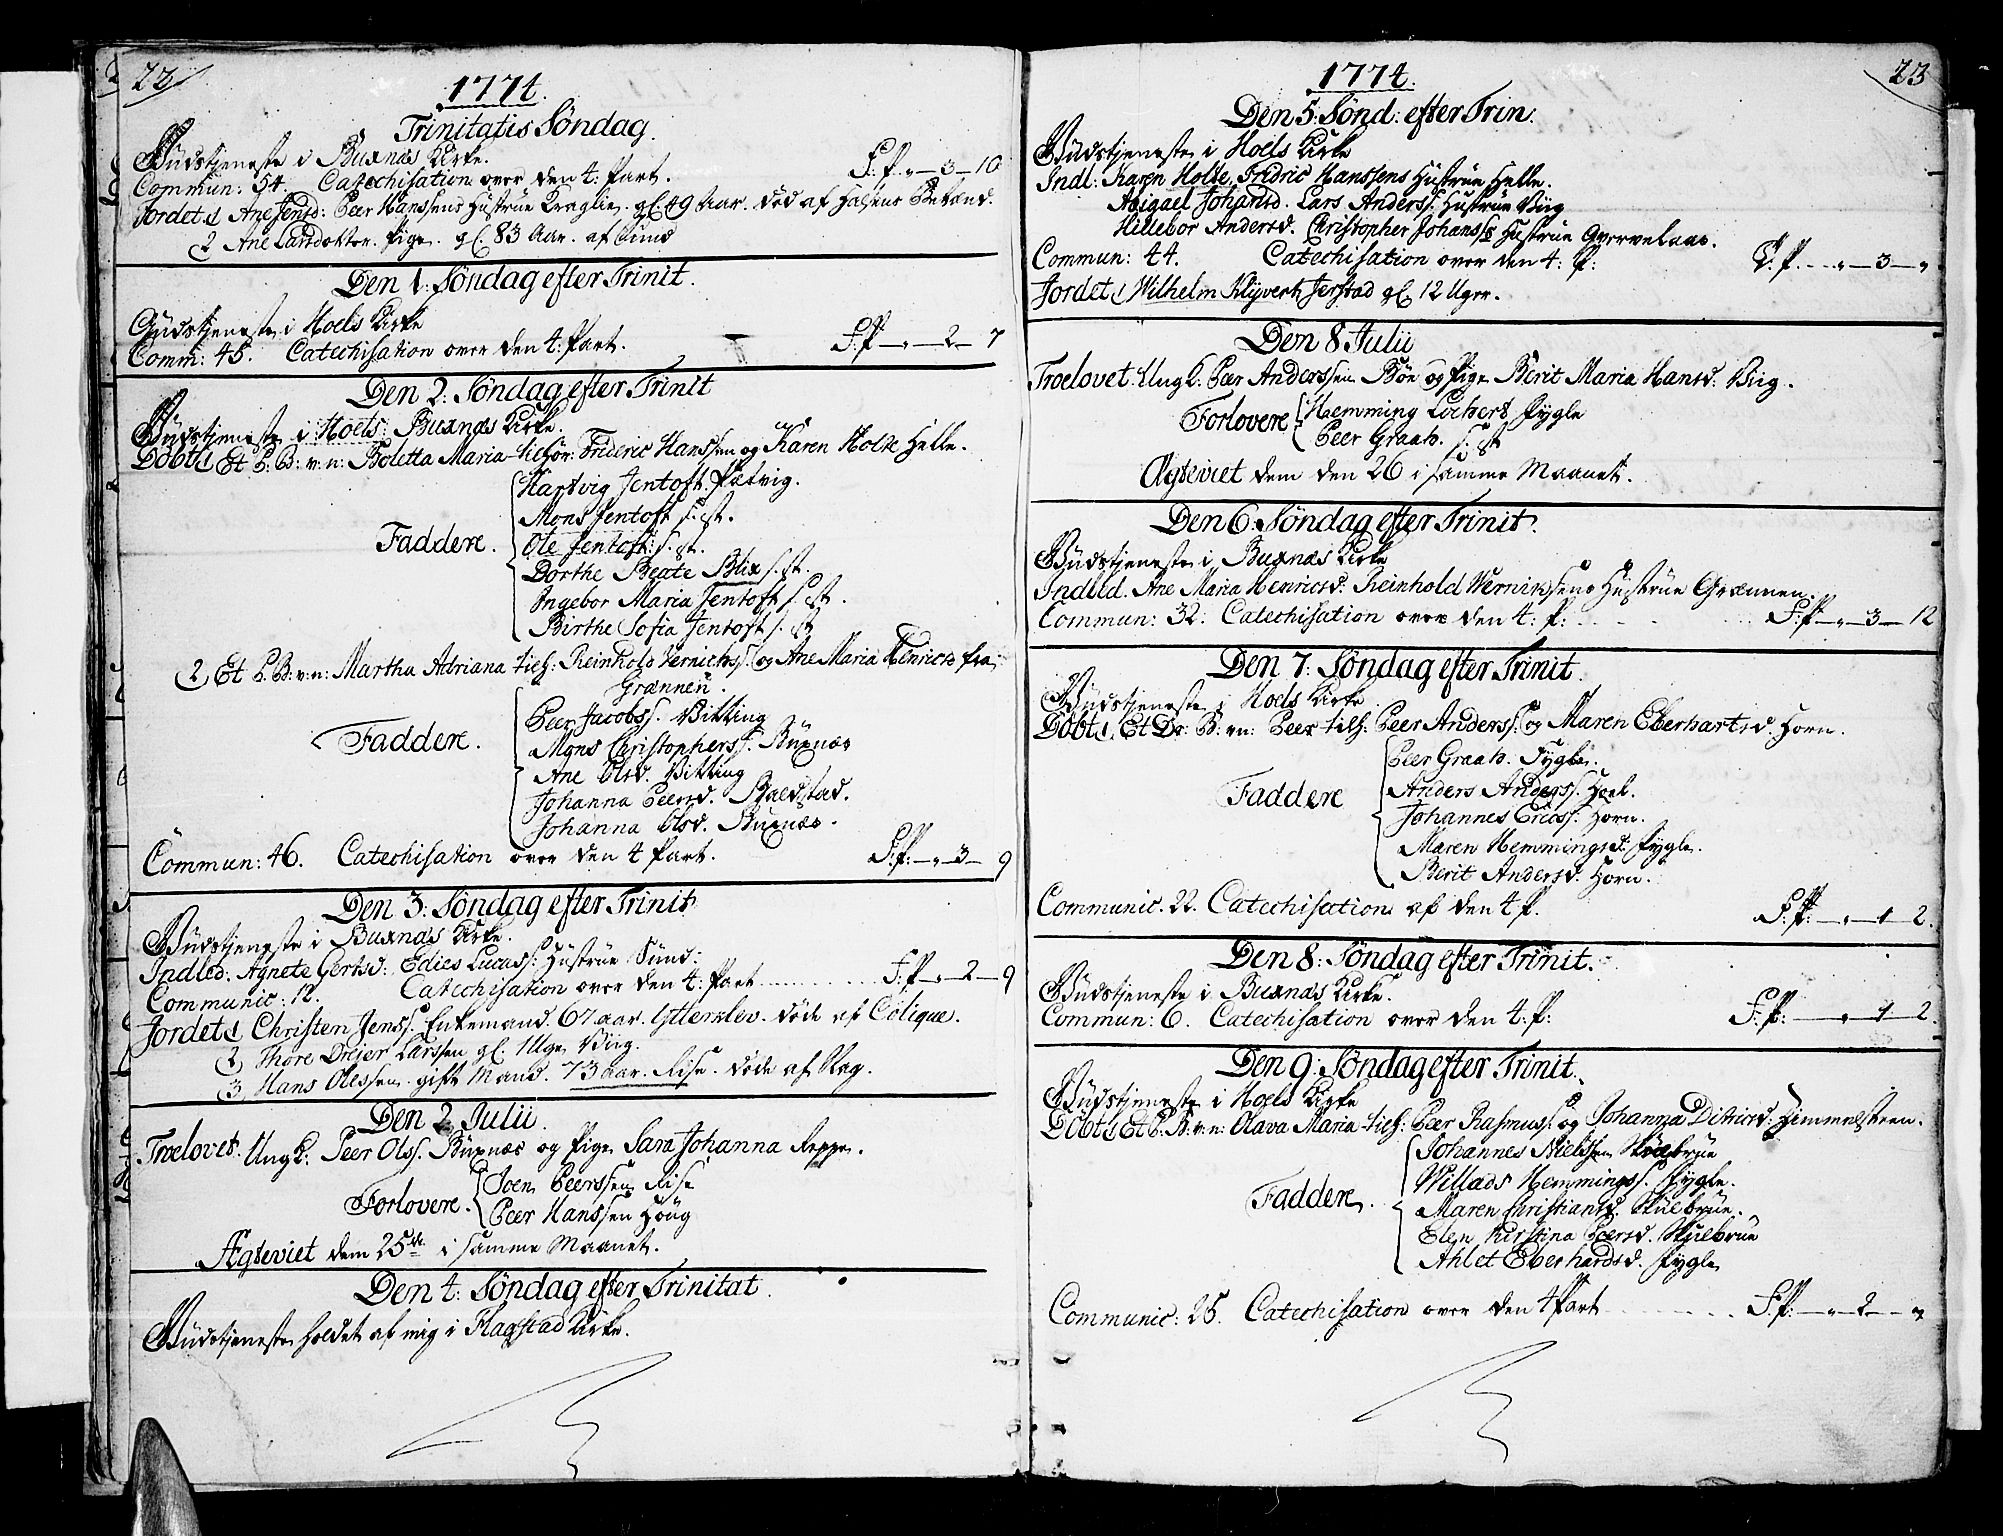 22
1774.
Trinitatis Søndag.
Gudstjeneste i Buxnæs Kirke.
Commun: 54. Catechisation over den 4: Part. F: P. „ — 3 — 10
Jordet 1 Ane Jensd: Peer Hanssens Hustrue Kraglie. gl. 49 Aar. død af Halsens Betænd.
2 Ane Larsdotter. Pige. gl. 83 Aar. af Sund
Den 1: Søndag efter Trinit.
Gudstjeneste i Hoels Kirke
Comm: 45. Catechisation over den 4: Part. F: P — „ — 2 — 7
Den 2: Søndag efter Trinit
Gudstjeneste i Hoels: Buxnæs Kirke.
Døbt 1 Et P. B: v: n: Boletta Maria tilhør: Frideric Hanssen og Karen Holst Helle.
Hartvig Jentoft. Pætvig.
Mons Jentoft s. st.
Faddere. Ole Jentoft: s. st.
Dorthe Beate Blix s. st.
Ingebor Maria Jentoft s. st.
Birthe Sofia Jentoft s. st
2 Et P. B: v: n: Martha Adriana tilh: Reinhold Vernichs. og Ane Maria Henricsd fra
Grænnen.
Peer Jacobss. Vitting
Faddere. Mons Christopherss. Buxnæs
Ane Olsd. Vitting
Johanna Peersd. Baldstad.
Johanna Olsd. Buxnæs.
Commun: 46. Catechisation over den 4 Part. F: P: — „ — 3 — 9
Den 3: Søndag efter Trinit
Gudstjeneste i Buxnæs Kirke.
Indled: Agnete Gertsd: Edies Lucass: Hustrue Sund:
Communic: 12. Catechisation over den 4: Part F: P — „ — 2 — 9
Jordet 1 Christen Jenss. Enkemand. 67 aar. Ytterslev. døde af Colique.
2 Thore Dreier Larssen gl. 1 Uge Viig.
3 Hans Olessen gift Mand. 73 aar. Rise. døde af Slag.
Den 2 Julii.
Troelovet. Ungk: Peer Olss. Buxnæs og Pige Sara Johanna Reppe.
Forlovere. Joen Peerssen Rise
Peer Hanssen Houg
Ægteviet dem 25de i samme Maanet.
Den 4: Søndag efter Trinitat.
Gudstjeneste holdet af mig i Flagstad Kirke.
23
1774.
Den 5: Sønd: efter Trin.
Gudstjeneste i Hoels Kirke
Indl: Karen Holst, Fridric Hanssens Hustrue Helle.
Abigael Johansd. Lars Anderss. Hustrue Viig
Hillebor Andersd. Christopher Johanss Hustrue
Commun: 44. Catechisation over den 4: P: F: P. — „ — 3 — „
Jordet 1 Wilhelm Klyvert Jerstad gl. 12 Uger.
Den 8 Julii
Troelovet Ungk. Peer Anderssen Bøe og Pige Berit Maria Hansd: Viig.
Forlovere Hemming Lochert Fygle
Peer Graah. s. st
Ægteviet dem den 26 i samme Maanet.
Den 6: Søndag efter Trinit.
Gudstjeneste i Buxnæs Kirke
Indled. Ane Maria Henricsd: Reinhold Vernichsens Hustrue Grænnen.
Commun: 32: Catechisation over den 4: P: F: P — „ — 3 — 12
Den 7: Søndag efter Trinit.
Gudstjeneste i Hoels Kirke
Døbt 1 Et Dr: B: vn: Peer tilh: Peer Anderss: og Maren Eberhartsd. Horn.
Peer Graah. Fygle.
Faddere Anders Anderss. Hoel.
Johannes Ericss: Horn.
Maren Hemmingsd: Fygle.
Berit Andersd. Horn.
Communic. 22. Catechisation af den 4 P. F: P: — „ — 1 2.
Den 8: Søndag efter Trinit.
Gudstjeneste i Buxnæs Kirke.
Commun: 6. Catechisation over den 4: P: F: P: — „ — 1 2.
Den 9: Søndag efter Trinit.
Gudstjeneste i Hoels Kirke
Døbt 1 Et P. B: v: n: Olava Maria tilh: Peer Rasmuss: og Johanna Ditricsd: Himmelsteen.
Johannes Nielssen Skulbrue
Willads Hemmings. Fygle.
Faddere. Maren Christiansd. Skulbrue.
Elen Kirstina Peersd. Skulbrue
Ahlet Eberhardsd. Fygle
Communic: 25. Catechisation over den 4 Part F: P: — „ — 2 — „